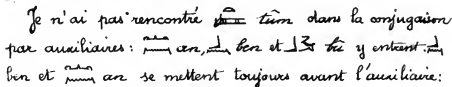 Je n'ai pas rencontré tûm dans la conjugaison
par auxiliaires: an, ben et bû y entrent.
ben et an se mettent toujours avant l'auxiliaire: